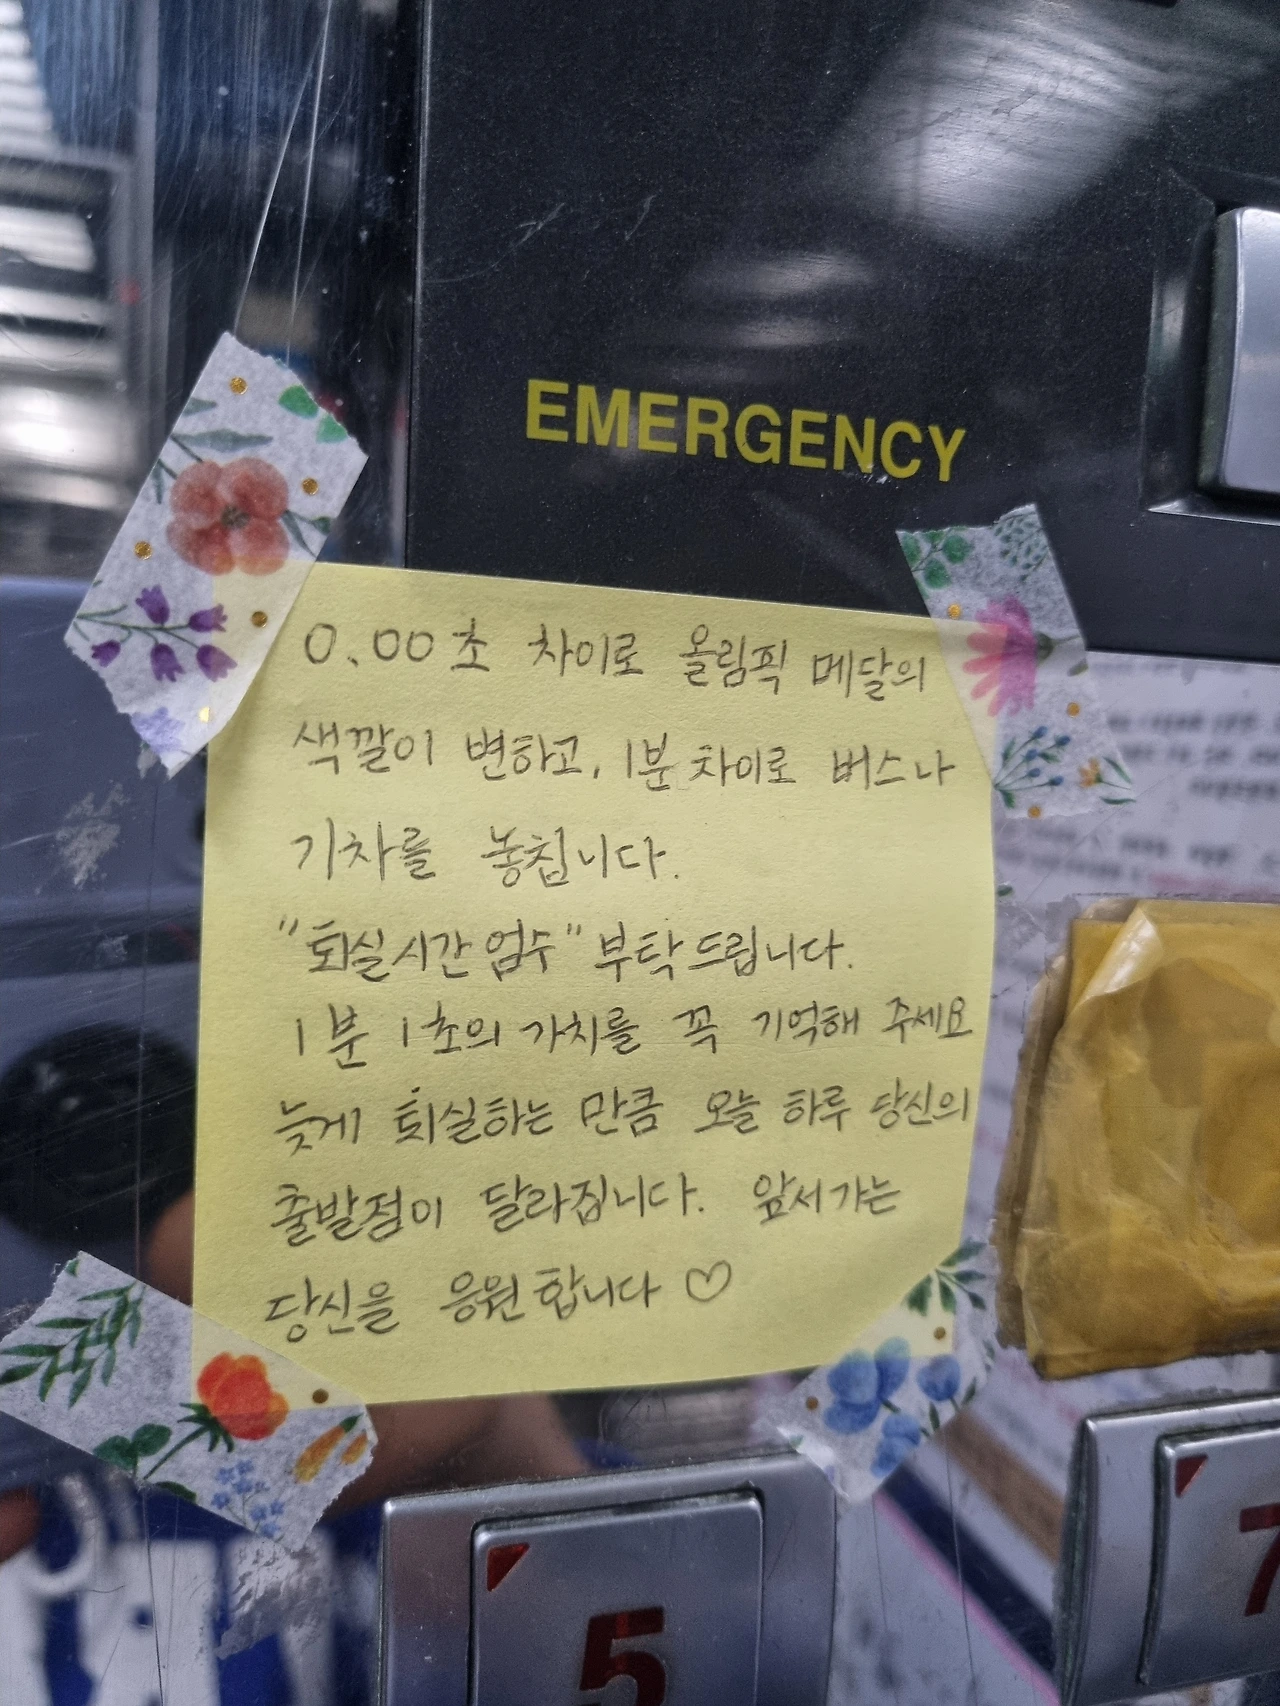 EMERGENCY
0.00초 차이로 올림픽 메달의
색깔이 변하고, 1분 차이로 버스나
기차를 놓칩니다.
"퇴실시간엄수" 부탁드립니다.
1분 1초의 가치를 꼭 기억해 주세요
늦게 퇴실하는 만큼 오늘 하루 당신의
출발점이 달라집니다. 앞서가는
당신을 응원합니다 ♡
5
7